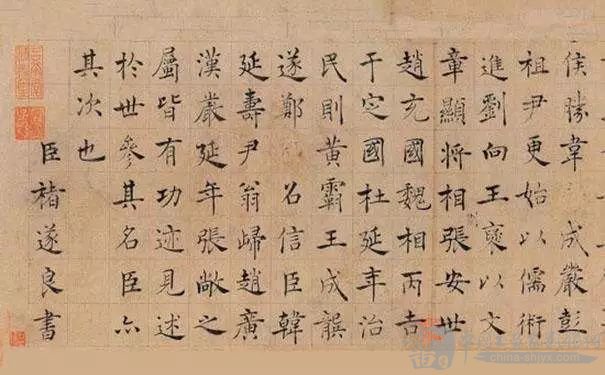 侯勝韋成嚴彭
祖尹更始以儒術
進劉向王褒以文
章顯將相張安世
趙充國魏相丙吉
于定國杜延年治
民則黃霸王成龔
遂鄭召信臣韓
延壽尹翁歸趙廣
漢嚴延年張敞之
屬皆有功迹見述
於世參其名臣亦
其次也
臣褚遂良書
china-shjyx.com